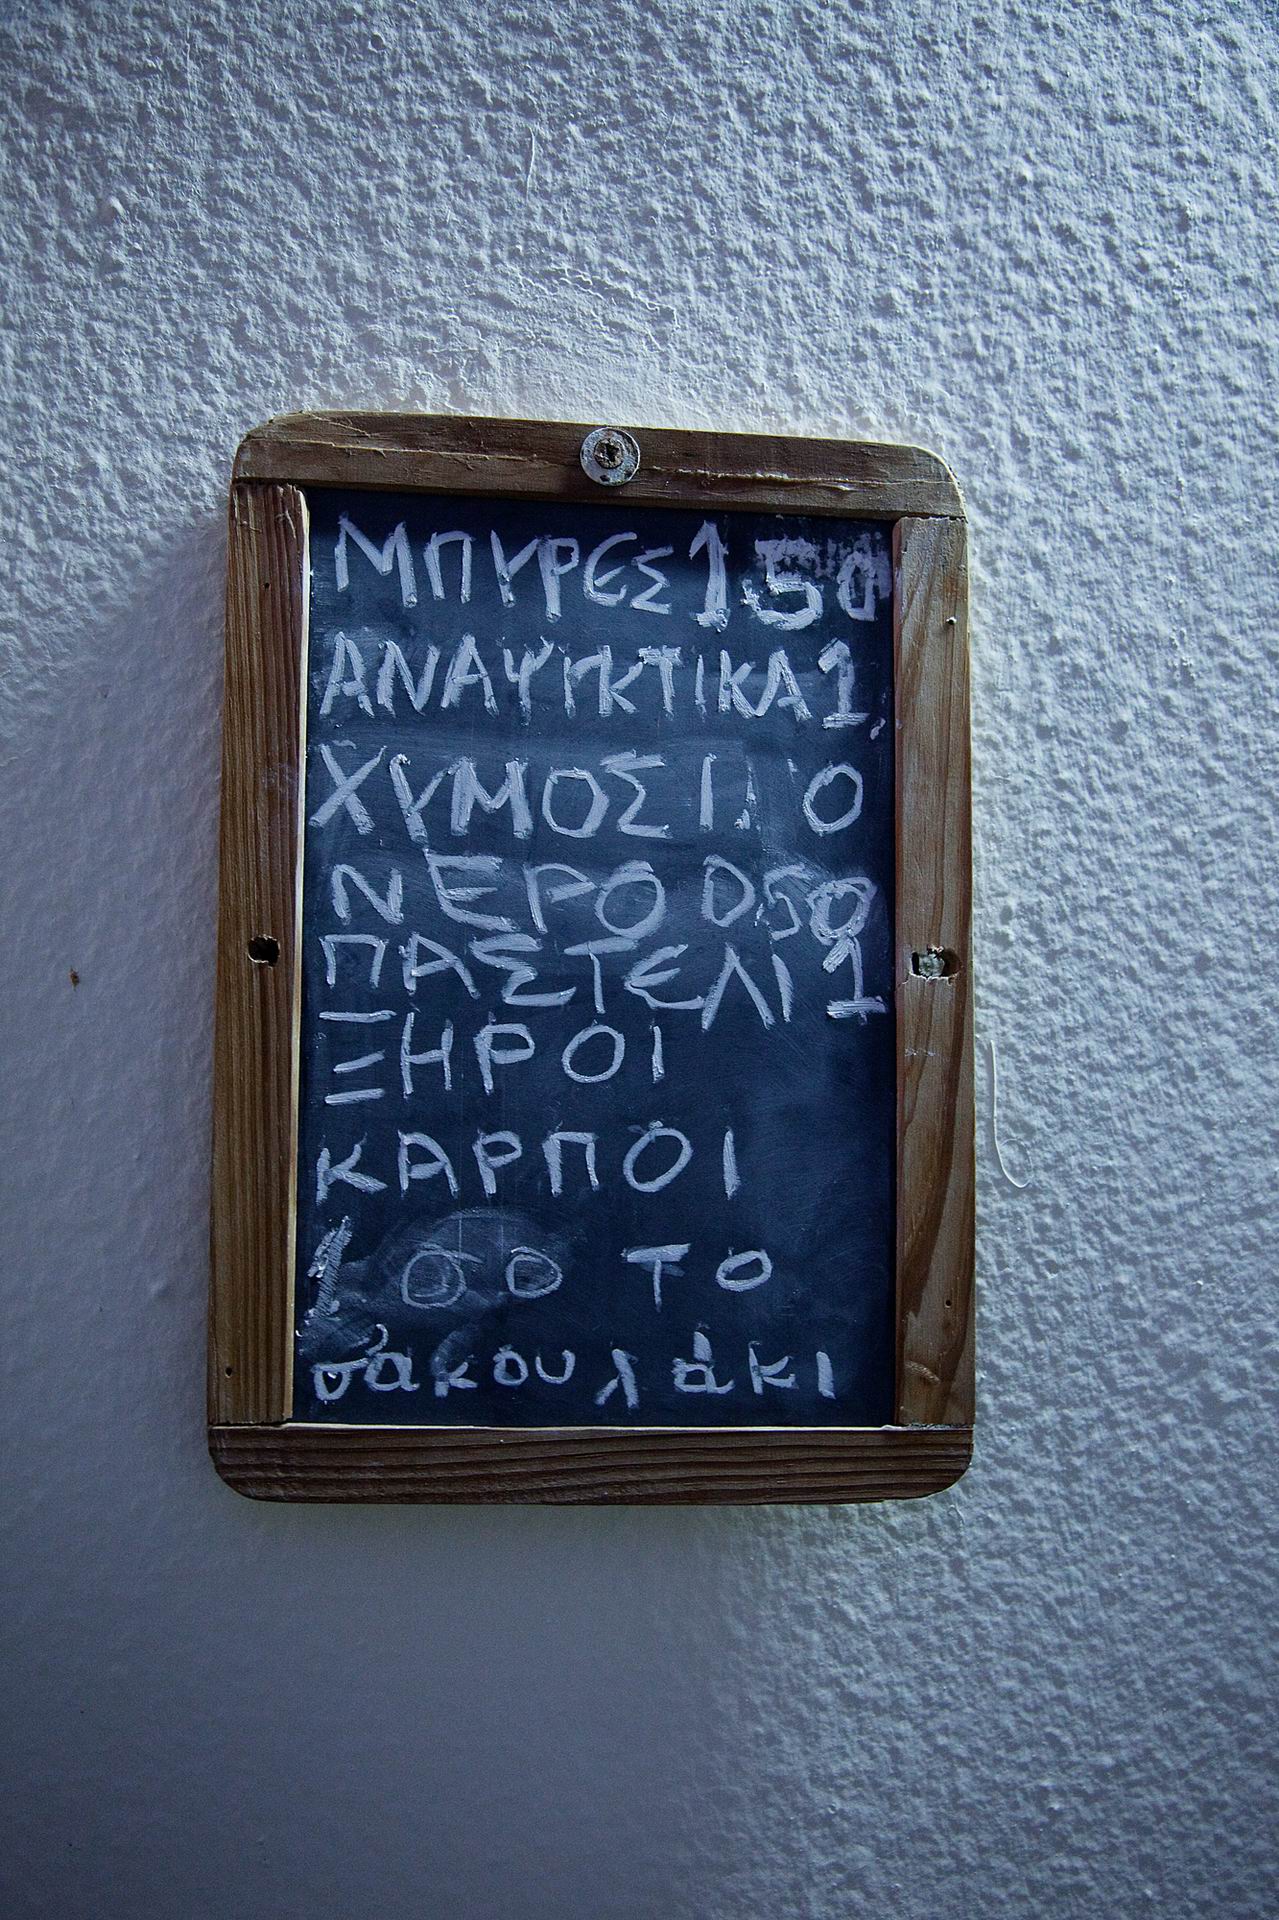 ΜΠΥΡΕΣ 1.50
ΑΝΑΨΥΚΤΙΚΑ 1
ΧΥΜΟΣ
ΝΕΡΟ 0.50
ΠΑΣΤΕΛΙ 1
ΞΗΡΟΙ
ΚΑΡΠΟΙ
1 00 ΤΟ
σακουλάκι